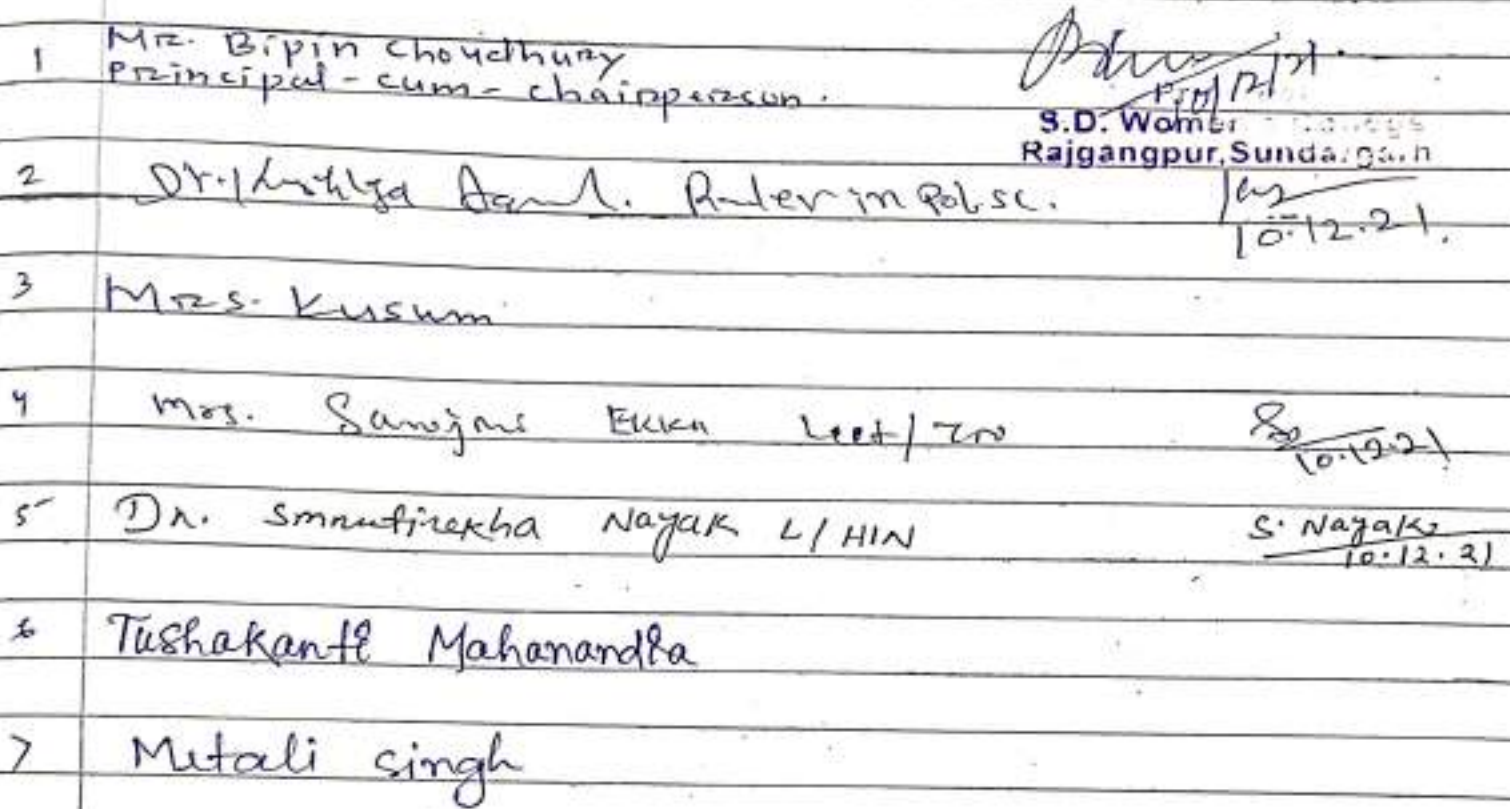 1 Mr. Bipin Choudhury
Principal-cum-chairperson.
S.D. Women's College
Rajgangpur, Sundargarh
2 Dr. in Pol.sc.
10.12.21.
3 Mrs. Kusum
4 Mrs. Sarojini Ekka Lect/
10.12.21
5 Dr. Smrutirekha Nayak L/HIN S. Nayak
10.12.21
6 Tushakanti Mahanandia
7 Mitali singh